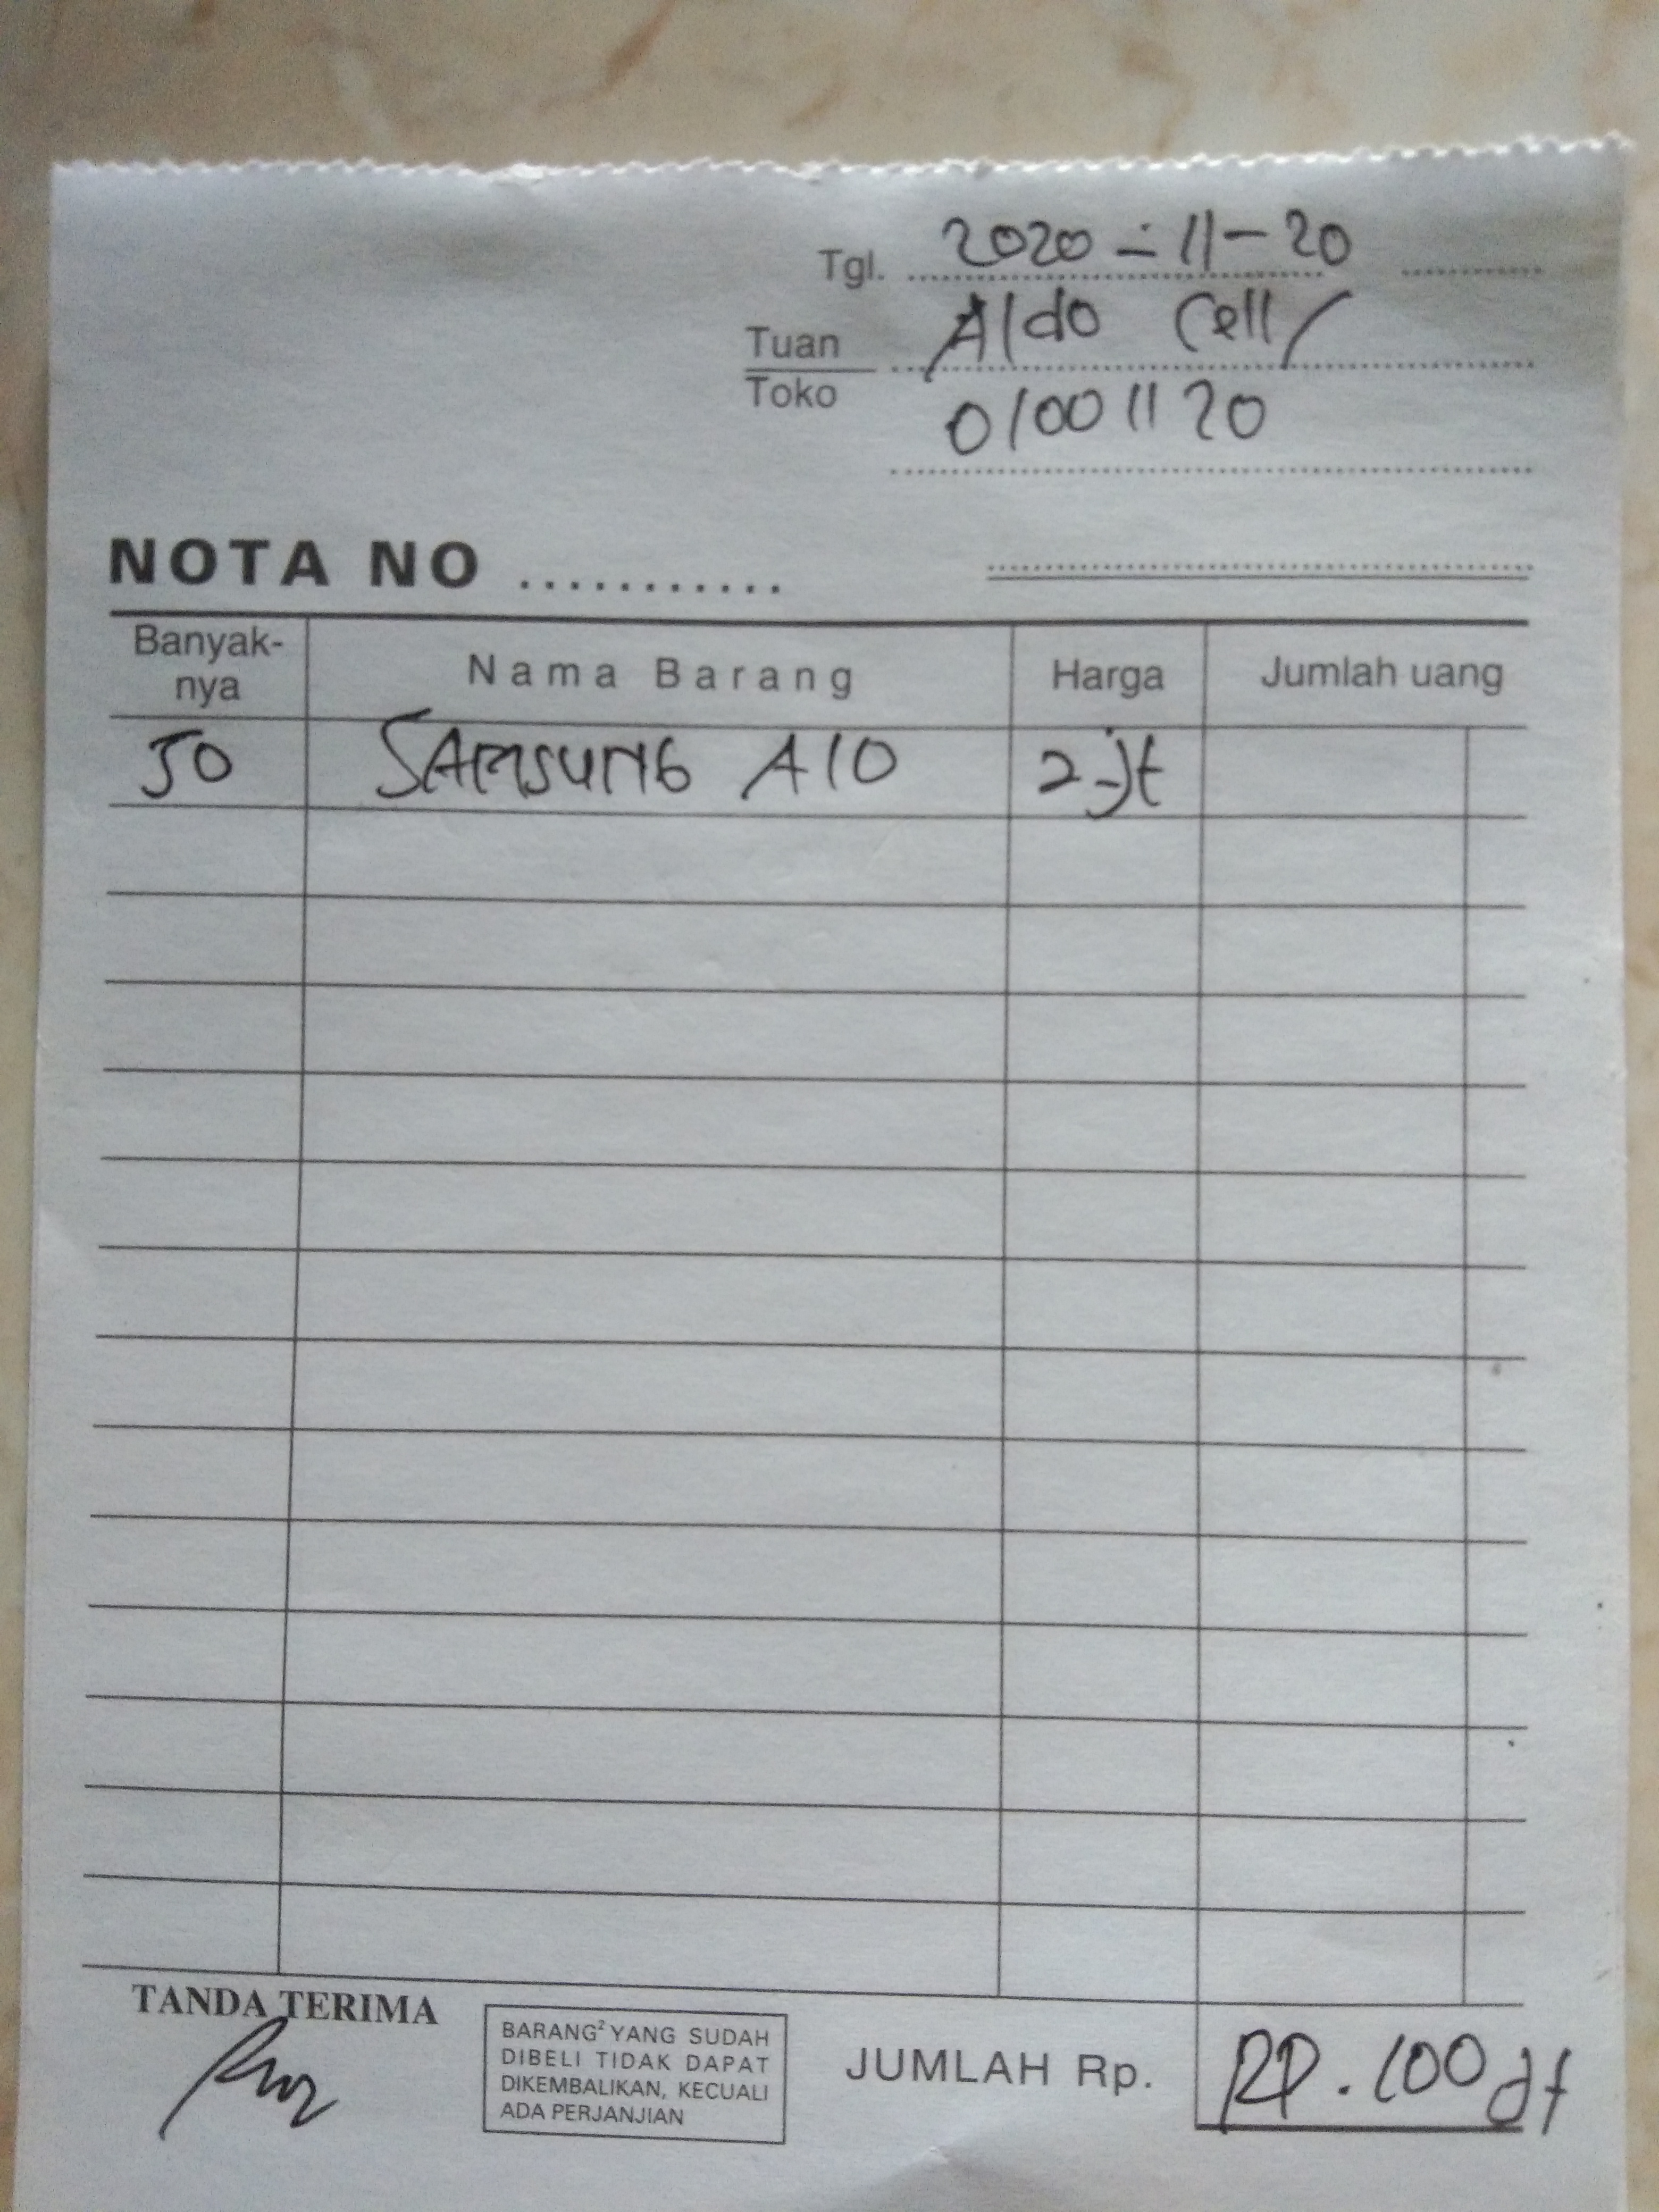 Tgl. 2020-11-20
Tuan Aldo Cell/
Toko
01001120
NOTA NO ...........
Banyak-nya Nama Barang Harga Jumlah uang
50 SAMSUNG A10 2 jt
TANDA TERIMA
BARANG² YANG SUDAH
DIBELI TIDAK DAPAT
DIKEMBALIKAN, KECUALI
ADA PERJANJIAN
JUMLAH Rp. RP. 100 jt